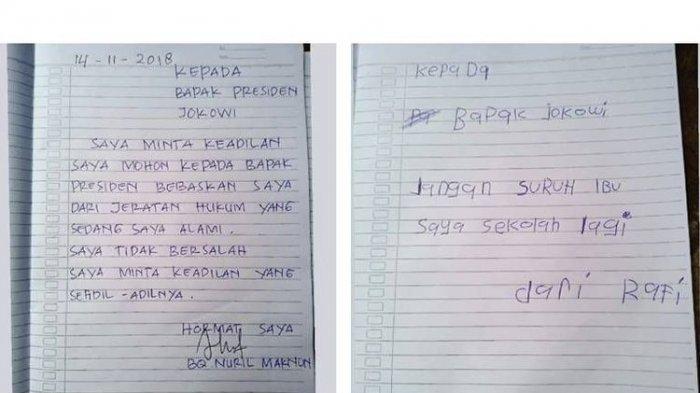 14-11-2018
KEPADA
BAPAK PRESIDEN
JOKOWI
SAYA MINTA KEADILAN
SAYA MOHON KEPADA BAPAK
PRESIDEN BEBASKAN SAYA
DARI JERATAN HUKUM YANG
SEDANG SAYA ALAMI.
SAYA TIDAK BERSALAH
SAYA MINTA KEADILAN YANG
SEADIL-ADILNYA.
HORMAT SAYA
BQ NURIL MAKNUN
kepada
Bapak jokowi
Jangan SURUH IBU
Saya sekolah lagi
dari Rafi